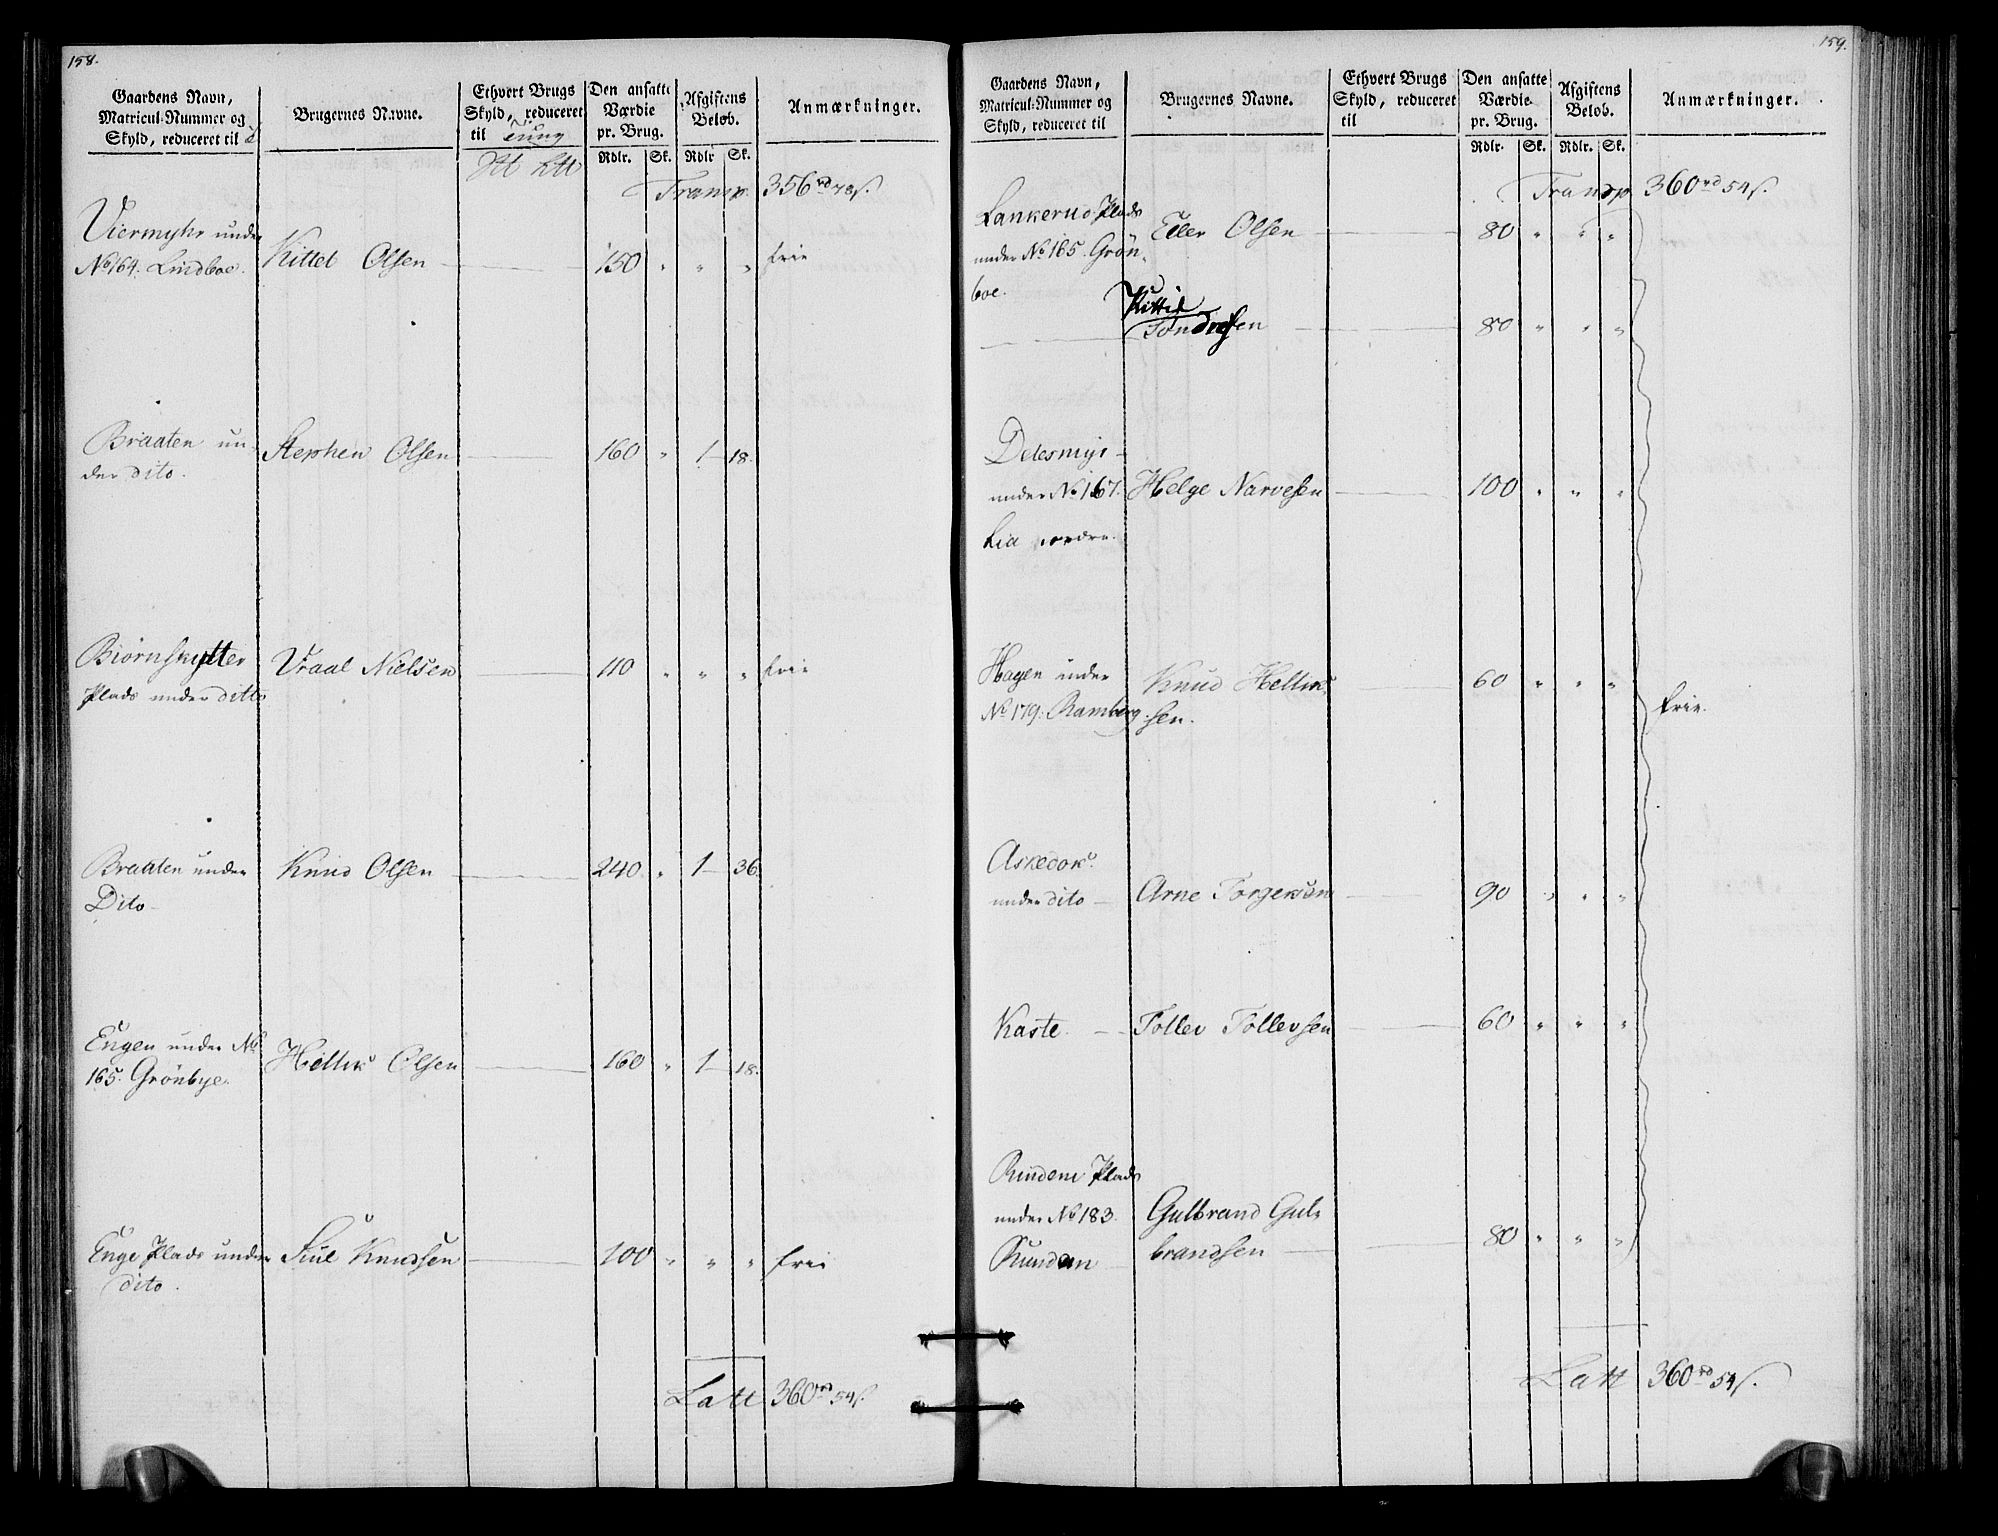 158.
Gaardens Navn,
Matricul-Nummer og
Skyld, reduceret til
Brugernes Navne.
Ethvert Brugs
Skyld, reduceret
til Tung
Den ansatte
Værdie
pr. Brug.
Afgiftens
Beløb.
Anmærkninger.
Rdlr. Sk. Rdlr Sk.
Transp. 356 rd 78 s.
Viermyhr under
No 164. Lindboe. Kittel Olsen 150 " " " frie
Braaten un-
der dito. Stephen Olsen 160 " 1 18.
Biörnskytter
Plads under ditto Vraal Nielsen 110 " " " frie
Braaten under
Dito Knud Olsen 240 " 1 36.
Engen under No
165. Grönbye. Hellik Olsen 160 " 1 18.
Enge Plads under
dito. Knudsen 100 " " " frie
Latt 360 rd 54 s.
159.
Gaardens Navn,
Matricul-Nummer og
Skyld, reduceret til
Brugernes Navne.
Ethvert Brugs
Skyld, reduceret
til
Den ansatte
Værdie
pr. Brug.
Afgiftens
Beløb.
Anmærkninger.
Rdlr. Sk. Rdlr. Sk.
Transp 360 rd 54 s.
Lankerud Plads
under No 165. Grön-
boe. Eller Olsen 80 " " "
Kittil
Tondresen 80 " " "
Delesmyr
under No 167.
Lia nordre. Helge Narvesen 100 " " "
Hagen under
No 179. Ramberg Knud Hellik-
sen. 60 " " "
frie.
under dito Arne Torgersen 90 " " "
Kaste. Toller Tollersen 60 " " "
Plads
under No 183.
Runden Gulbrand Gul-
brandsen 80 " " "
Latt 360 rd 54 s.